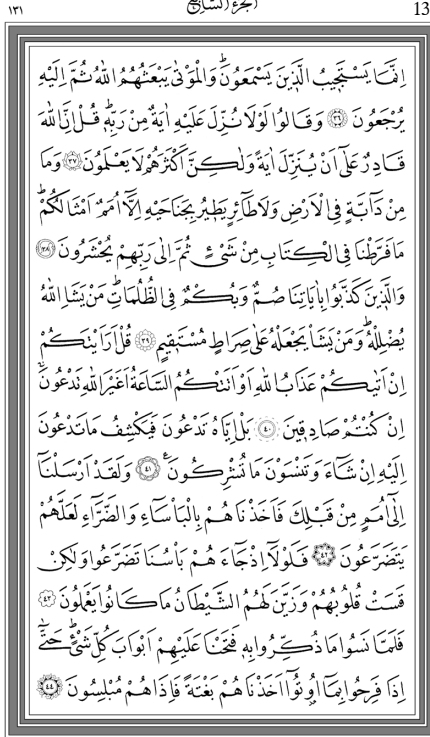 ١٣١ الجزء السابع 13
اِنَّمَا يَسْتَجٖيبُ الَّذٖينَ يَسْمَعُونَ وَالْمَوْتٰى يَبْعَثُهُمُ اللّٰهُ ثُمَّ اِلَيْهِ
يُرْجَعُونَ ﴿٣٦﴾ وَقَالُوا لَوْلَا نُزِّلَ عَلَيْهِ اٰيَةٌ مِنْ رَبِّهٖ قُلْ اِنَّ اللّٰهَ
قَادِرٌ عَلٰٓى اَنْ يُنَزِّلَ اٰيَةً وَلٰكِنَّ اَكْثَرَهُمْ لَا يَعْلَمُونَ ﴿٣٧﴾ وَمَا
مِنْ دَٓابَّةٍ فِي الْاَرْضِ وَلَا طَٓائِرٍ يَطٖيرُ بِجَنَاحَيْهِ اِلَّٓا اُمَمٌ اَمْثَالُكُمْ
مَا فَرَّطْنَا فِي الْكِتَابِ مِنْ شَيْءٍ ثُمَّ اِلٰى رَبِّهِمْ يُحْشَرُونَ ﴿٣٨﴾
وَالَّذٖينَ كَذَّبُوا بِاٰيَاتِنَا صُمٌّ وَبُكْمٌ فِي الظُّلُمَاتِ مَنْ يَشَأِ اللّٰهُ
يُضْلِلْهُ وَمَنْ يَشَأْ يَجْعَلْهُ عَلٰى صِرَاطٍ مُسْتَقٖيمٍ ﴿٣٩﴾ قُلْ اَرَاَيْتَكُمْ
اِنْ اَتٰيكُمْ عَذَابُ اللّٰهِ اَوْ اَتَتْكُمُ السَّاعَةُ اَغَيْرَ اللّٰهِ تَدْعُونَ
اِنْ كُنْتُمْ صَادِقٖينَ ﴿٤٠﴾ بَلْ اِيَّاهُ تَدْعُونَ فَيَكْشِفُ مَا تَدْعُونَ
اِلَيْهِ اِنْ شَٓاءَ وَتَنْسَوْنَ مَا تُشْرِكُونَ ﴿٤١﴾ وَلَقَدْ اَرْسَلْنَٓا
اِلٰٓى اُمَمٍ مِنْ قَبْلِكَ فَاَخَذْنَاهُمْ بِالْبَاْسَٓاءِ وَالضَّرَّٓاءِ لَعَلَّهُمْ
يَتَضَرَّعُونَ ﴿٤٢﴾ فَلَوْلَٓا اِذْ جَٓاءَهُمْ بَاْسُنَا تَضَرَّعُوا وَلٰكِنْ
قَسَتْ قُلُوبُهُمْ وَزَيَّنَ لَهُمُ الشَّيْطَانُ مَا كَانُوا يَعْمَلُونَ ﴿٤٣﴾
فَلَمَّا نَسُوا مَا ذُكِّرُوا بِهٖ فَتَحْنَا عَلَيْهِمْ اَبْوَابَ كُلِّ شَيْءٍ حَتّٰٓى
اِذَا فَرِحُوا بِمَٓا اُو۫تُٓوا اَخَذْنَاهُمْ بَغْتَةً فَاِذَا هُمْ مُبْلِسُونَ ﴿٤٤﴾